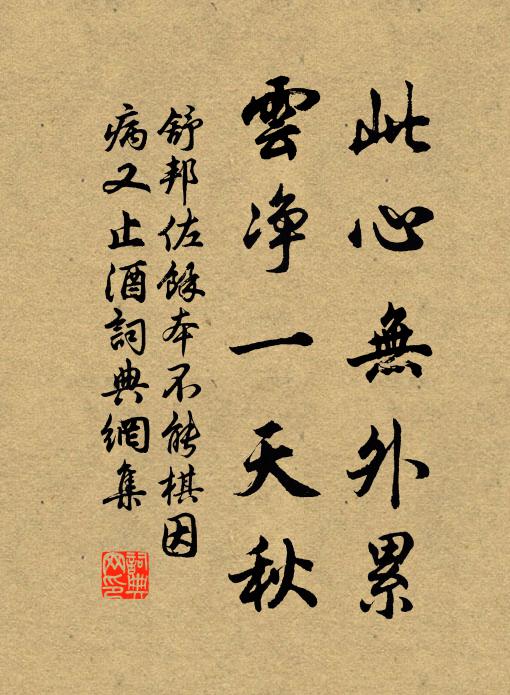 此心無外累
雲净一天秋
舒邦佐餘本不能棋因
病又止酒詞典網集
詞典
网印